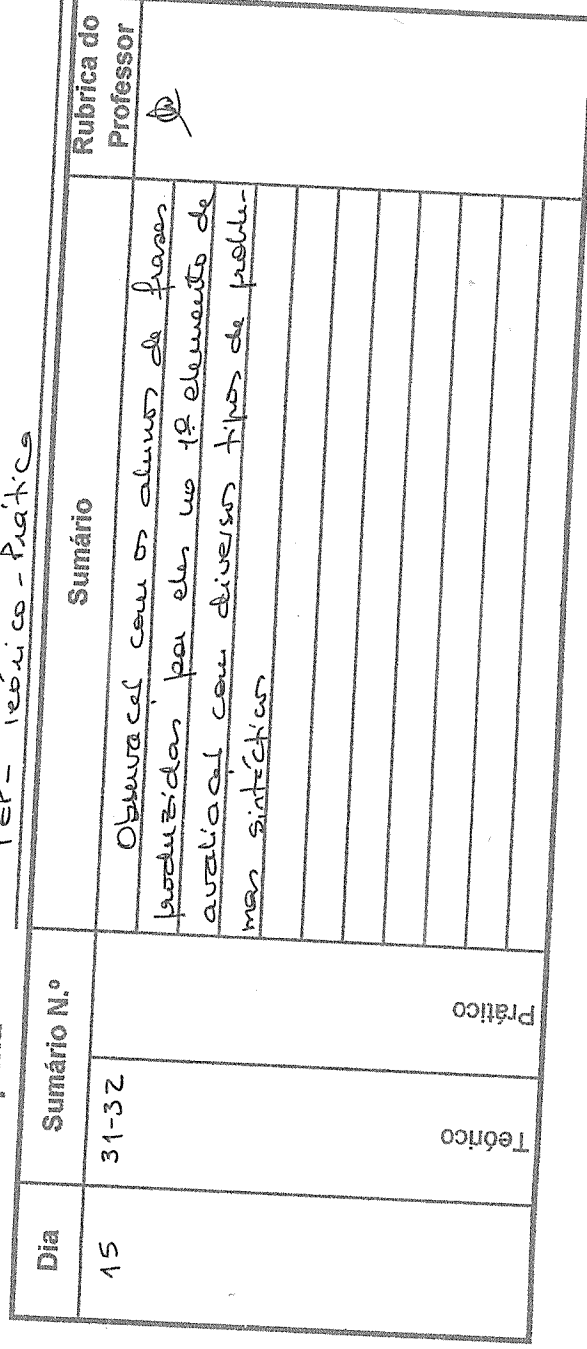 TEP - Teórico - Prática
Dia
Sumário N.º
Sumário
Rubrica do
Professor
15
31-32
Teórico
Prático
Observação com os alunos de frases
produzidas por eles no 1º elemento de
avaliação com diversos tipos de proble-
mas sintácticos